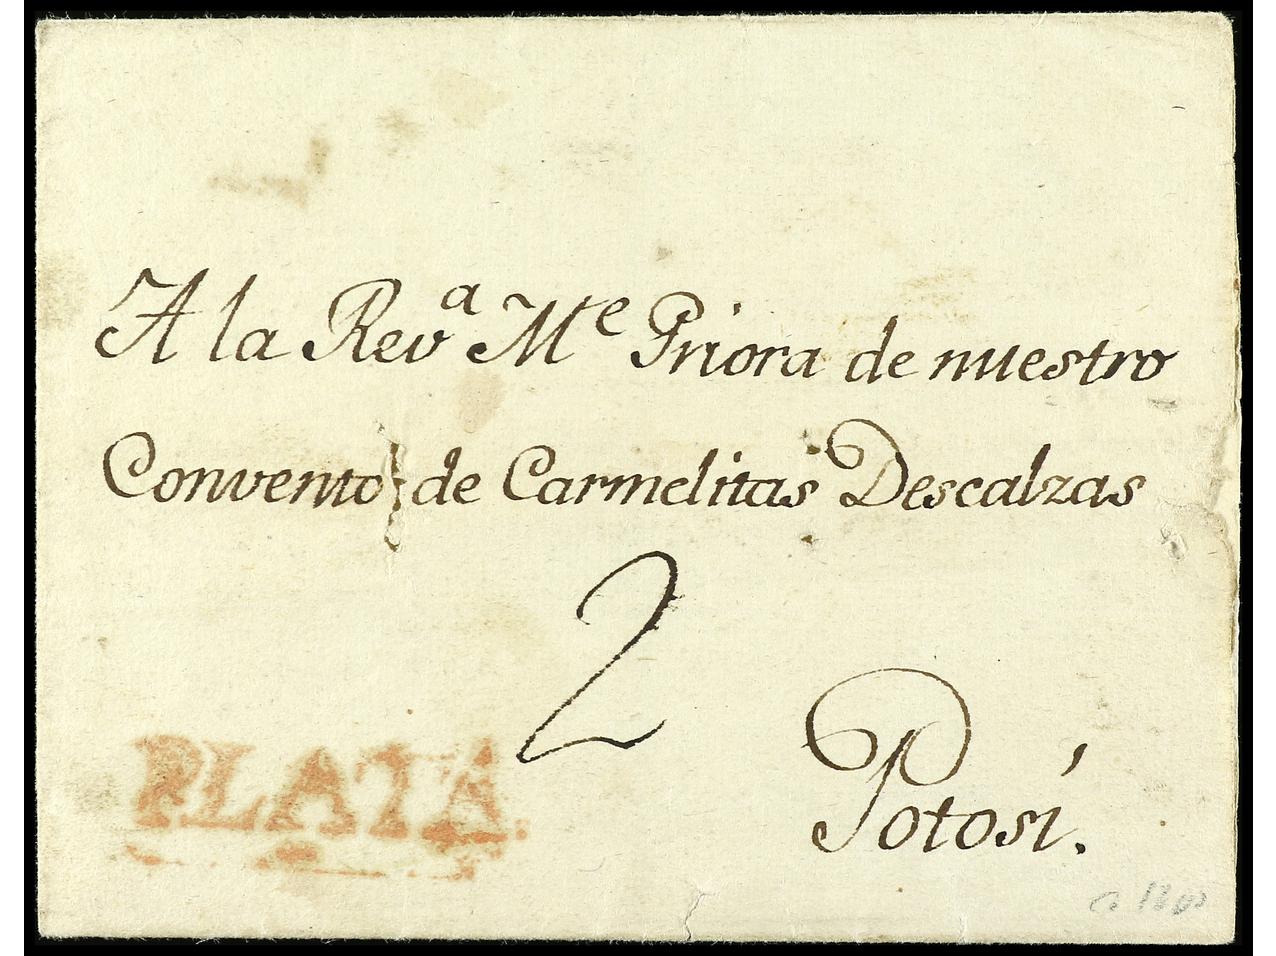 A la Revª Mᵉ Priora de nuestro
Convento de Carmelitas Descalzas
2
Potosí.
PLATA